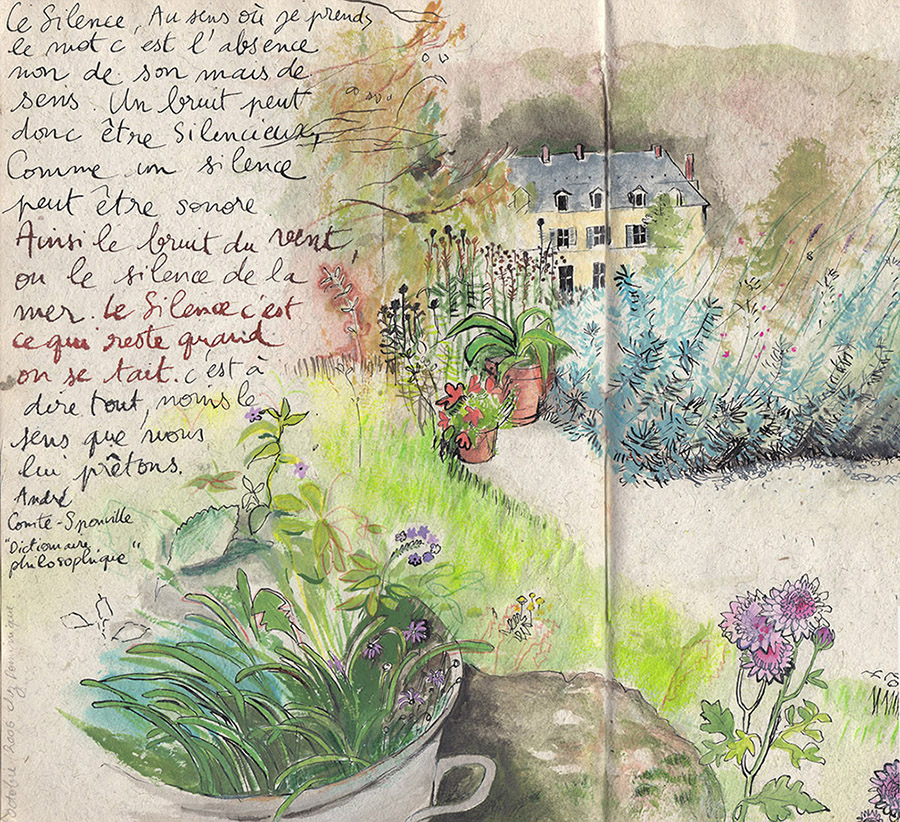 Le Silence, Au sens où je prends
le mot c est l'absence
non de son mais de
sens. Un bruit peut
donc être Silencieux,
Comme un silence
peut être sonore.
Ainsi le bruit du vent,
ou le silence de la
mer. Le Silence c'est
ce qui reste quand
on se tait. c'est à
dire tout, moins le
sens que nous
lui prêtons.
André
Comte-Sponville
"Dictionnaire
philosophique"
octobre 2006 chez Dominique